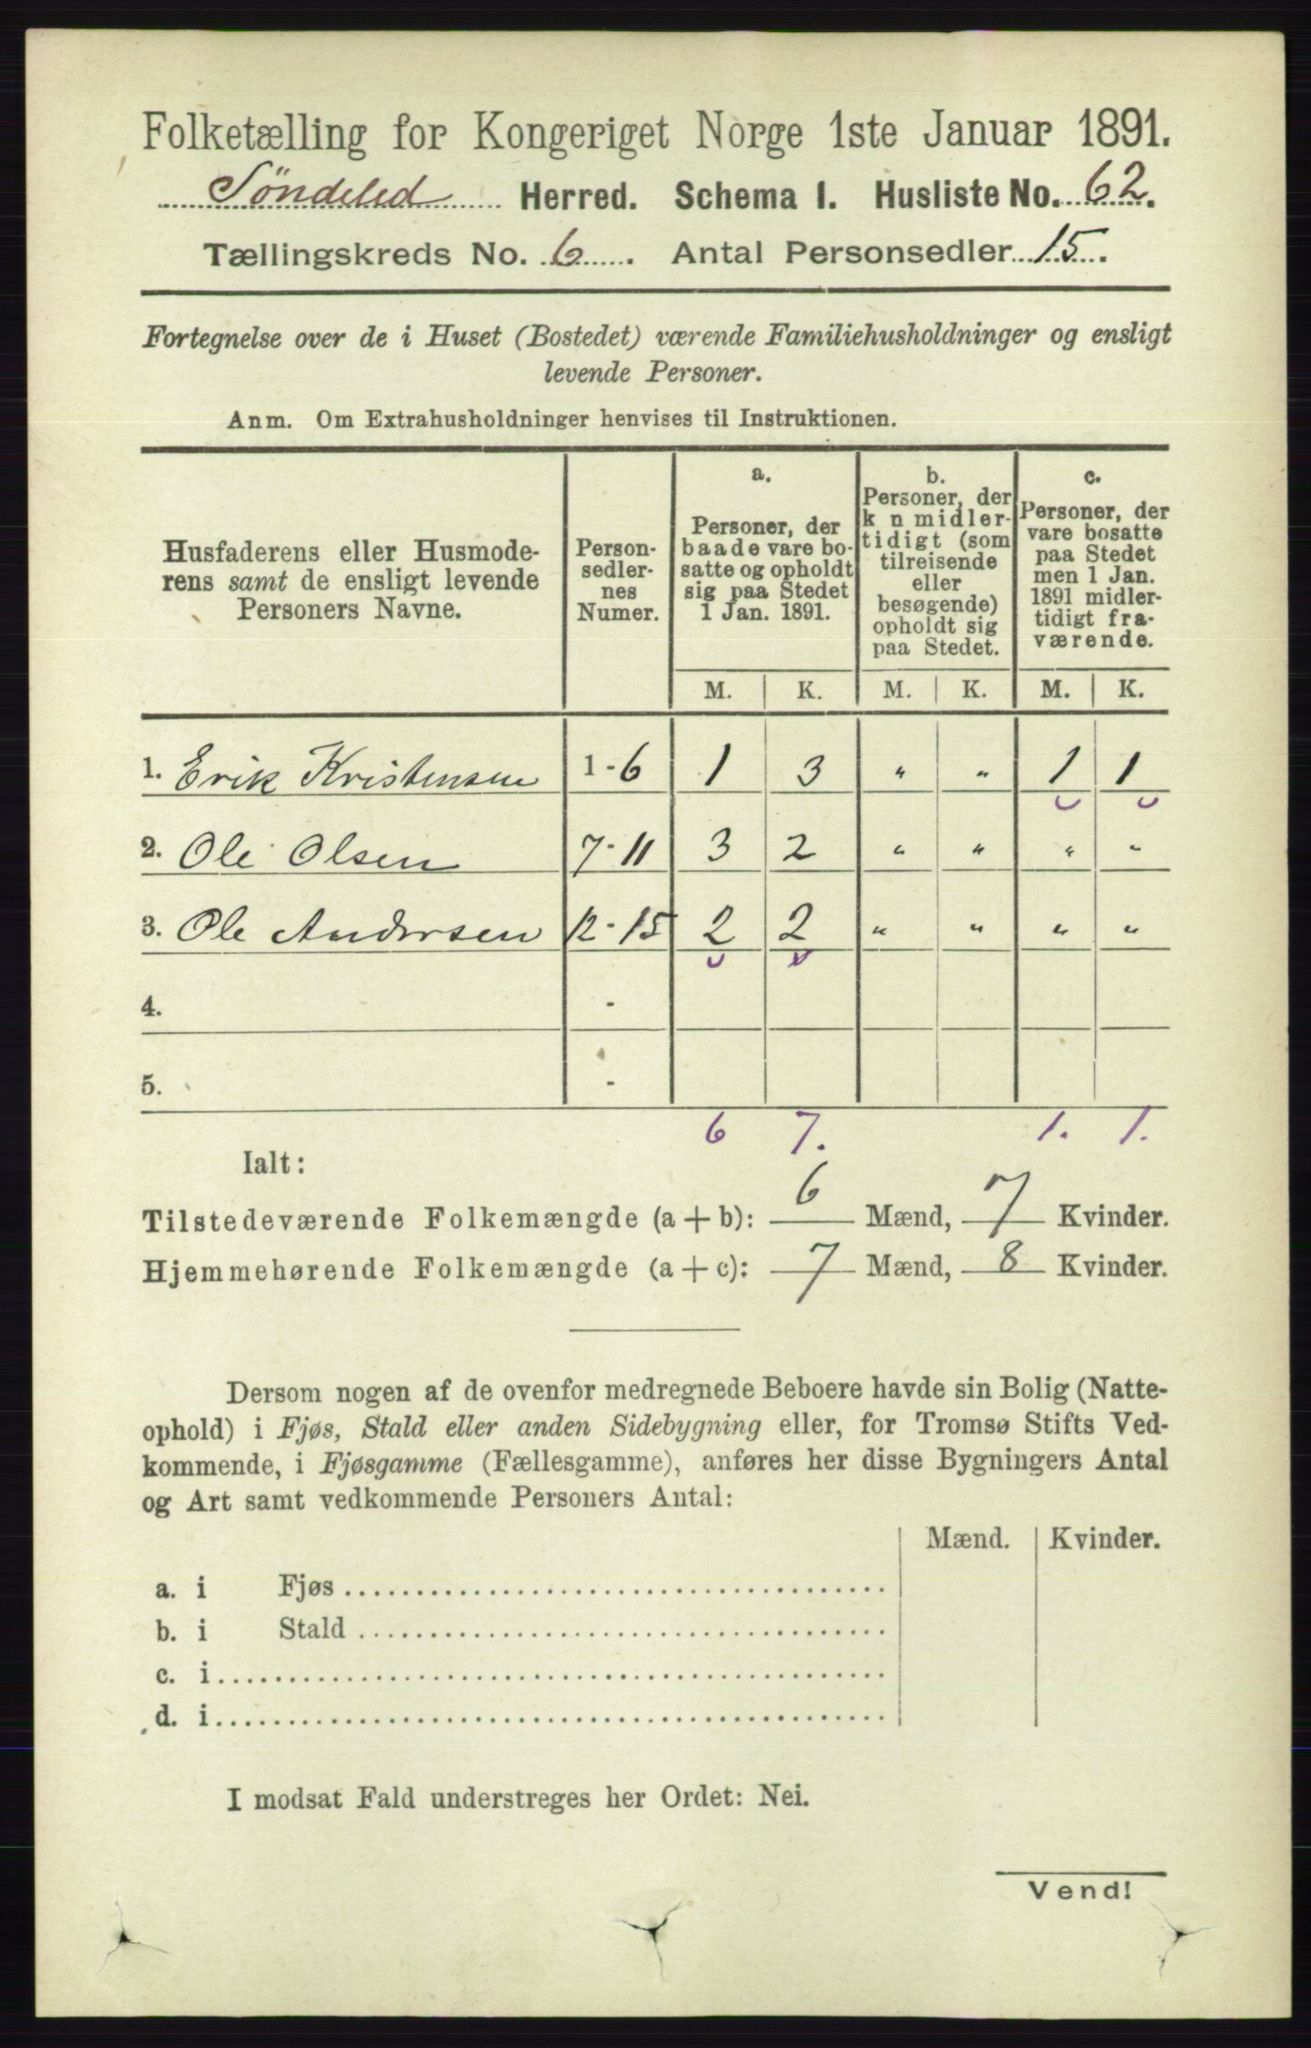 Folketælling for Kongeriget Norge 1ste Januar 1891.
Søndeled Herred. Schema I. Husliste No. 62.
Tællingskreds No. 6. Antal Personsedler 15.
Fortegnelse over de i Huset (Bostedet) værende Familiehusholdninger og ensligt
levende Personer.
Anm. Om Extrahusholdninger henvises til Instruktionen.
Husfaderens eller Husmode-
rens samt de ensligt levende
Personers Navne.
Person-
sedler-
nes
Numer.
a.
Personer, der
baade vare bo-
satte og opholdt
sig paa Stedet
1 Jan. 1891.
b.
Personer, der
k n midler-
tidigt (som
tilreisende
eller
besøgende)
opholdt sig
paa Stedet.
c.
Personer, der
vare bosatte
paa Stedet
men 1 Jan.
1891 midler-
tidigt fra-
værende.
M. K. M. K. M. K.
1. Erik Kristensen 1-6 1 3 „ „ 1 1
2. Ole Olsen 7-11 3 2 „ „ „ „
3. Ole Andersen 12-15 2 2 „ „ „ „
4. -
5. -
6 7. 1. 1.
Ialt:
Tilstedeværende Folkemængde (a + b): 6 Mænd, 7 Kvinder.
Hjemmehørende Folkemængde (a + c): 7 Mænd, 8 Kvinder.
Dersom nogen af de ovenfor medregnede Beboere havde sin Bolig (Natte-
ophold) i Fjøs, Stald eller anden Sidebygning eller, for Tromsø Stifts Ved-
kommende, i Fjøsgamme (Fællesgamme), anføres her disse Bygningers Antal
og Art samt vedkommende Personers Antal:
Mænd. Kvinder.
a. i Fjøs
b. i Stald
c. i
d. i
I modsat Fald understreges her Ordet: Nei.
Vend!